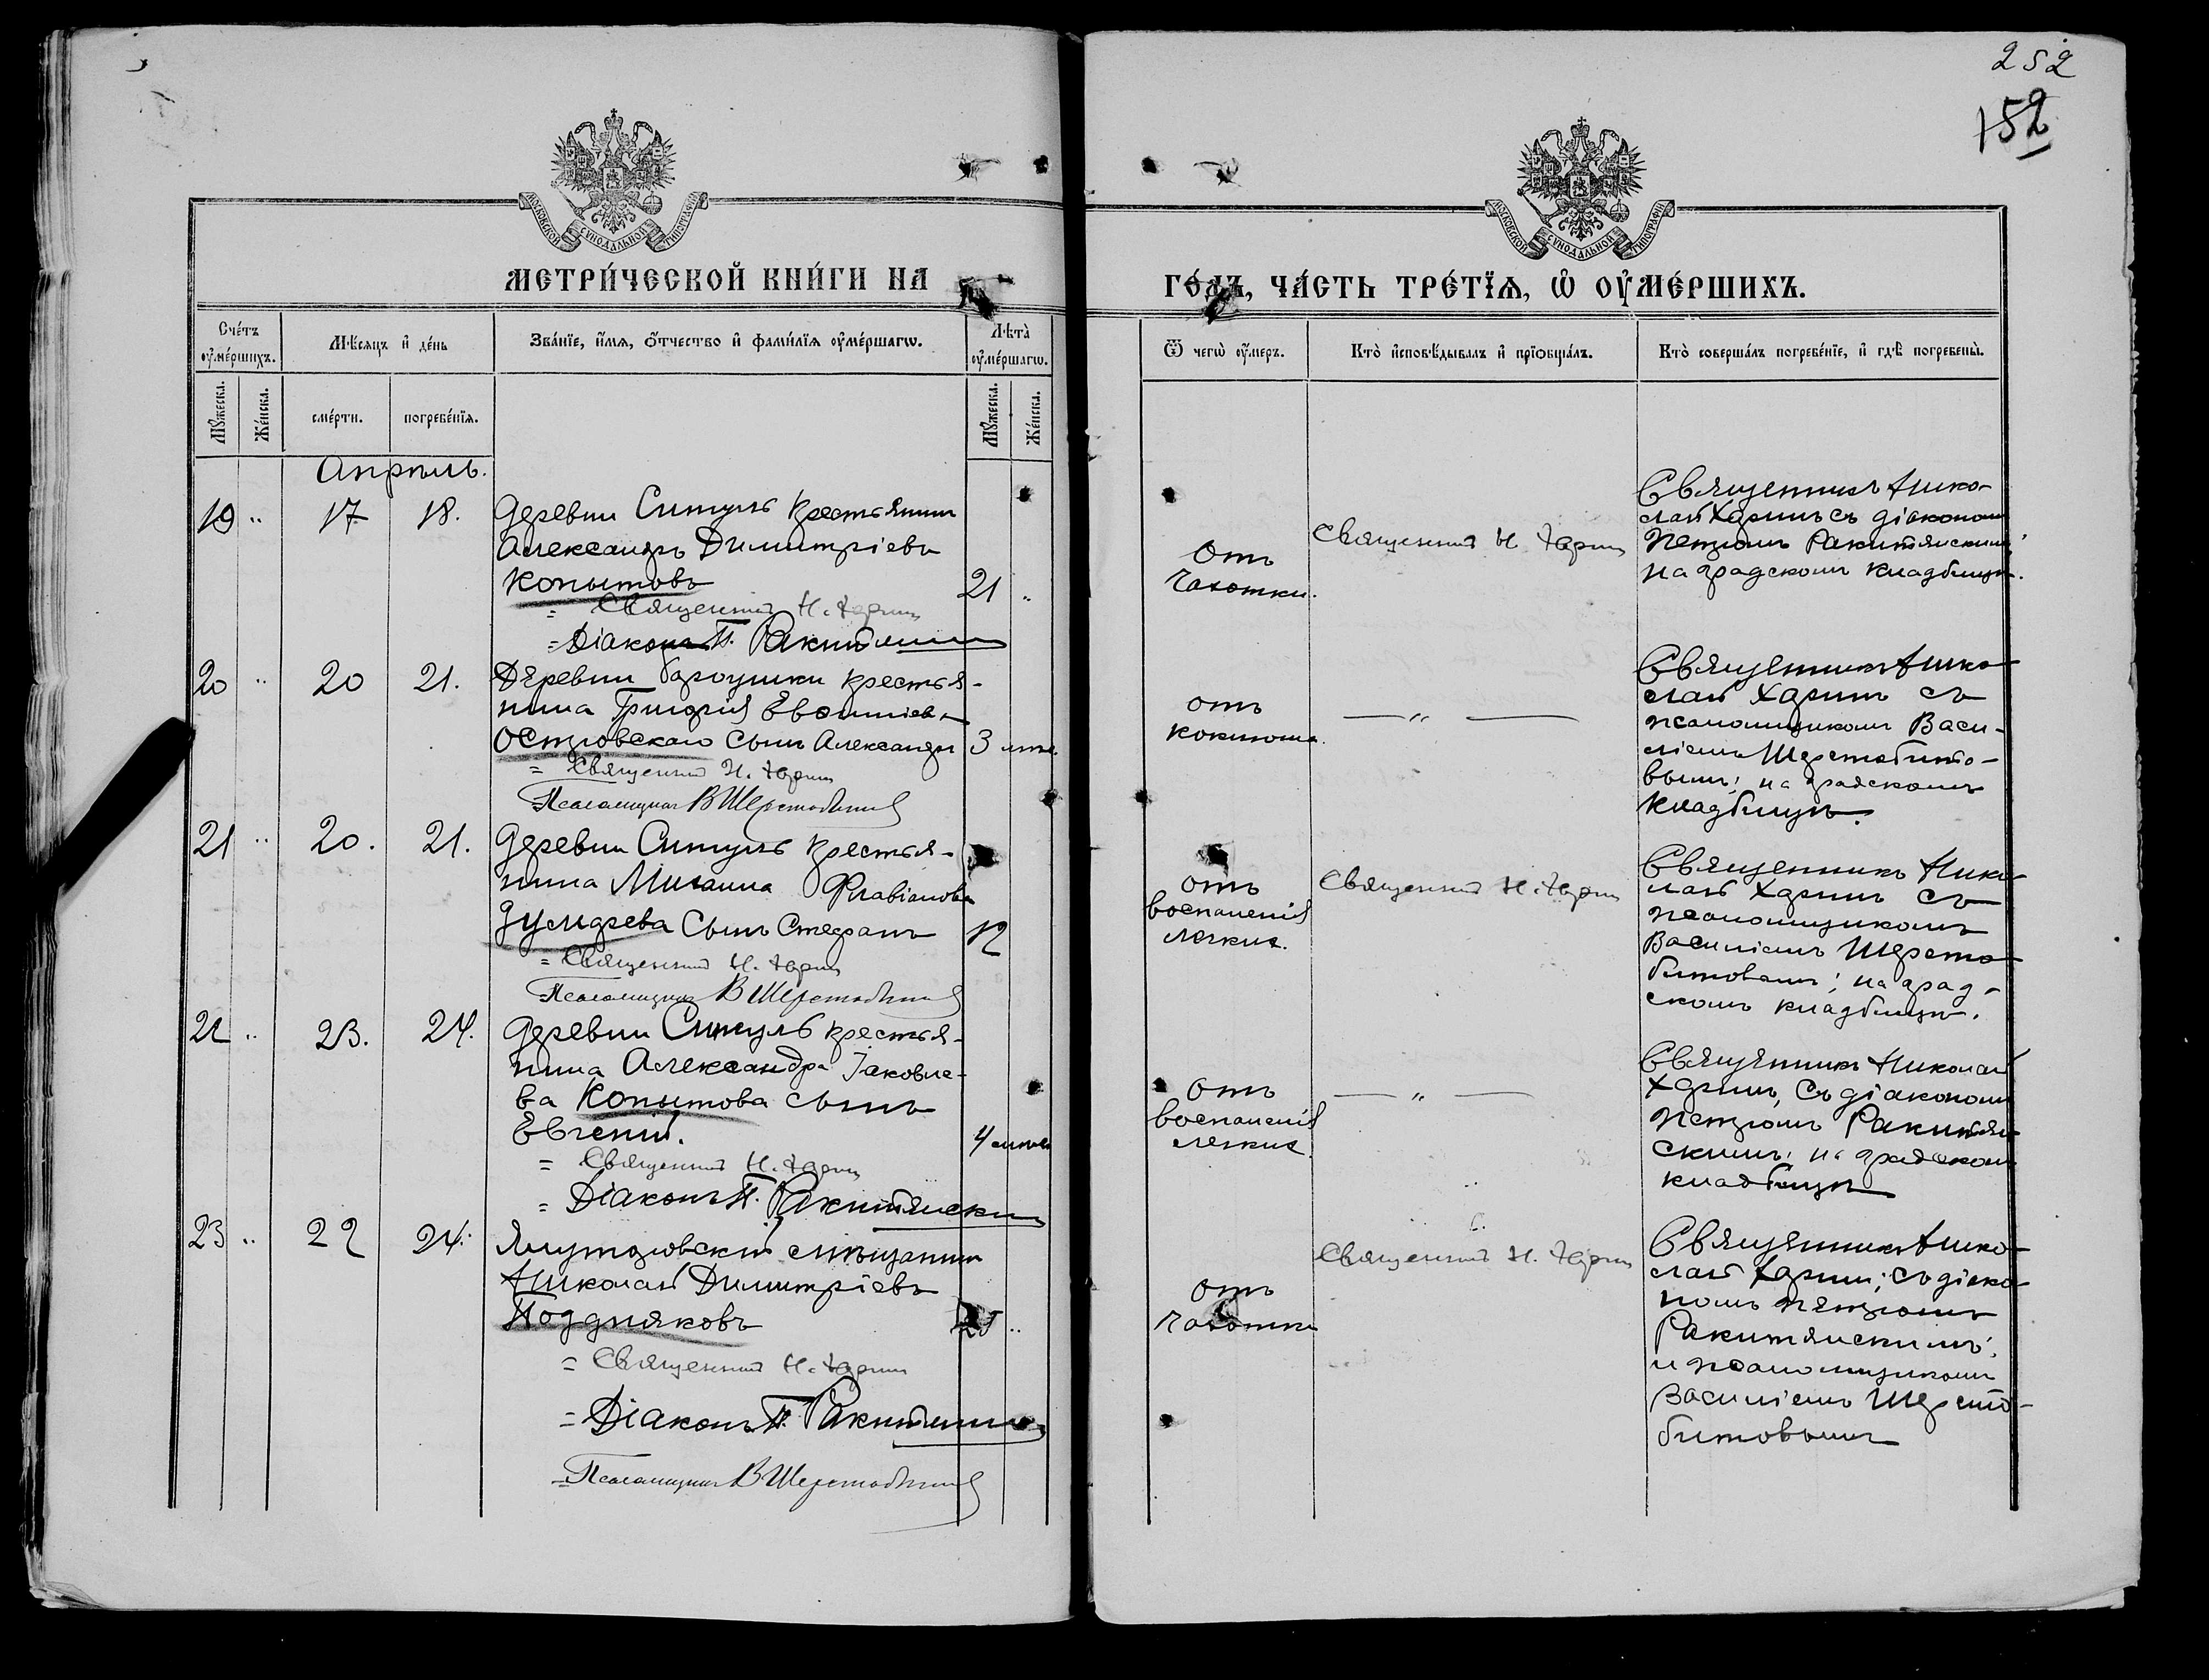 252
152
МОСКОВСКОЙ СѴНОДАЛЬНОЙ ТИПОГРАФИИ
МОСКОВСКОЙ СѴНОДАЛЬНОЙ ТИПОГРАФИИ
МЕТРИ́ЧЕСКОЙ КНИ́ГИ НА
ГО́ДЪ, ЧА́СТЬ ТРЕ́ТЇѦ, Ѡ҆ ОУ҆МЕ́РШИХЪ.
Сче́тъ оу҆ме́ршихъ.
Мѣ́сяцъ и҆ де́нь
Зва́нїе, и҆́мѧ, ѻ҆́тчество и҆ фами́лїѧ оу҆ме́ршагѡ.
Лѣта̀ оу҆ме́ршагѡ.
Ѿ чегѡ̀ оу҆́меръ.
Кто̀ и҆сповѣ́дывалъ и҆ прїѻбща́лъ.
Кто̀ соверша́лъ погребе́нїе, и҆ гдѣ̀ погребены̀.
Мꙋ́жеска.
Же́нска.
сме́рти.
погребе́нїѧ.
Мꙋ́жеска.
Же́нска.
Апрѣль.
19 " 17 18. Деревни Сингуль крестьянин
Александръ Димитріевъ
Копытовъ 21 "
= Священникъ Н. Харин
= Діаконъ П. Ракитянский
Отъ
чахотки.
Священникъ Н. Харин
Священникъ Нико-
лай Харинъ съ діакономъ
Петромъ Ракитянскимъ;
на градскомъ кладбищѣ.
20 " 20 21. Деревни крестья-
нина Григорія Евфиміева
Островскаго сынъ Александръ 3 лѣтъ
= Священникъ Н. Харин
Псаломщикъ В Шерстобитов
отъ
коклюша.
— " —
Священникъ Нико-
лай Харинъ съ
псаломщикомъ Васи-
ліемъ Шерстобито-
вымъ; на градскомъ
кладбищѣ.
21 " 20. 21. Деревни Сингуль крестья-
нина Михаила Флавіанова
сынъ Стефанъ 12
= Священникъ Н. Харин
Псаломщикъ В Шерстобитов
отъ
воспаленія
легкихъ.
Священникъ Н. Харин
Священникъ Нико-
лай Харинъ съ
псаломщикомъ
Василіемъ Шерсто-
битовымъ; на град-
скомъ кладбищѣ.
22 " 23. 24. Деревни Сингуль крестья-
нина Александра Іаковле-
ва Копытова сынъ
Евгеній. 4
= Священникъ Н. Харин
= Діаконъ П. Ракитянский
Отъ
воспаленія
легкихъ
— " —
Священникъ Николай
Харинъ, съ діакономъ
Петромъ Ракитян-
скимъ; на градскомъ
кладбищѣ
23 " 22 24. Ялуторовскій мѣщанинъ
Николай Димитріевъ
Поздняковъ 25 "
= Священникъ Н. Харин
= Діаконъ П. Ракитянский
= Псаломщикъ В Шерстобитов
отъ
чахотки
Священникъ Н. Харин
Священникъ Нико-
лай Харинъ; съ діако-
номъ Петромъ
Ракитянскимъ;
и псаломщикомъ
Василіемъ Шерсто-
битовымъ